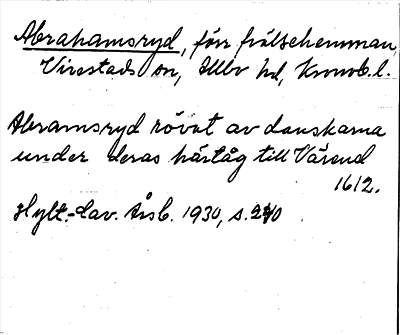 Abrahamsryd, förr frälsehemman,
Virestads sn, Allbo hd, Kronob. l.
Abramsryd rövat av danskarna
under deras härtåg till Värend
1612.
Hylt.-Cav. Årsb. 1930, s. 240